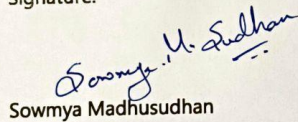 Signature:
Sowmya. M. Sudhan
Sowmya Madhusudhan